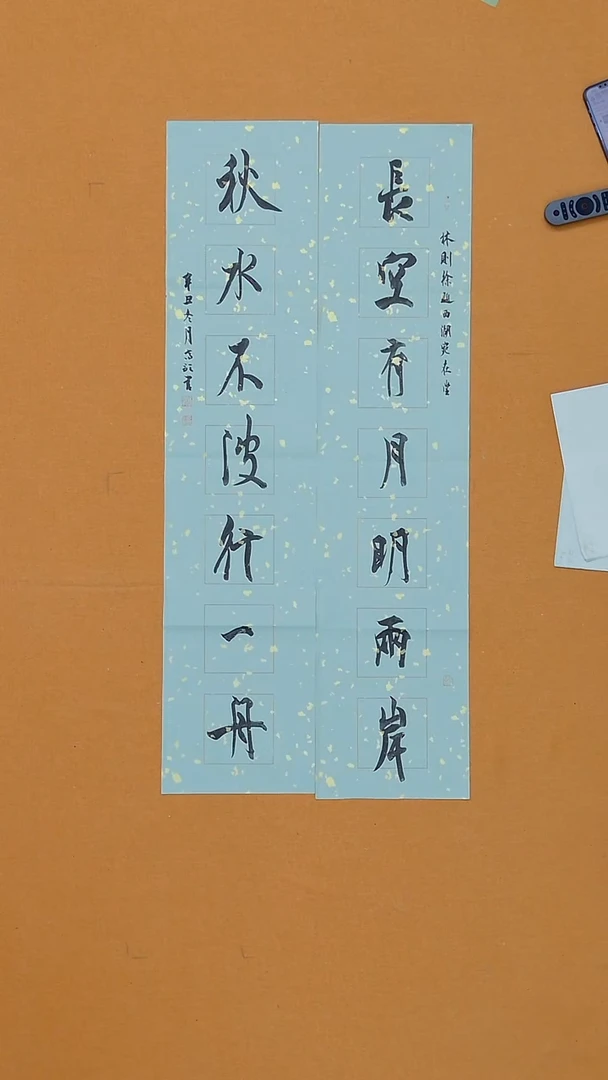 林則徐題西湖宛在堂
長空有月明兩岸
秋水不波行一舟
辛丑冬月